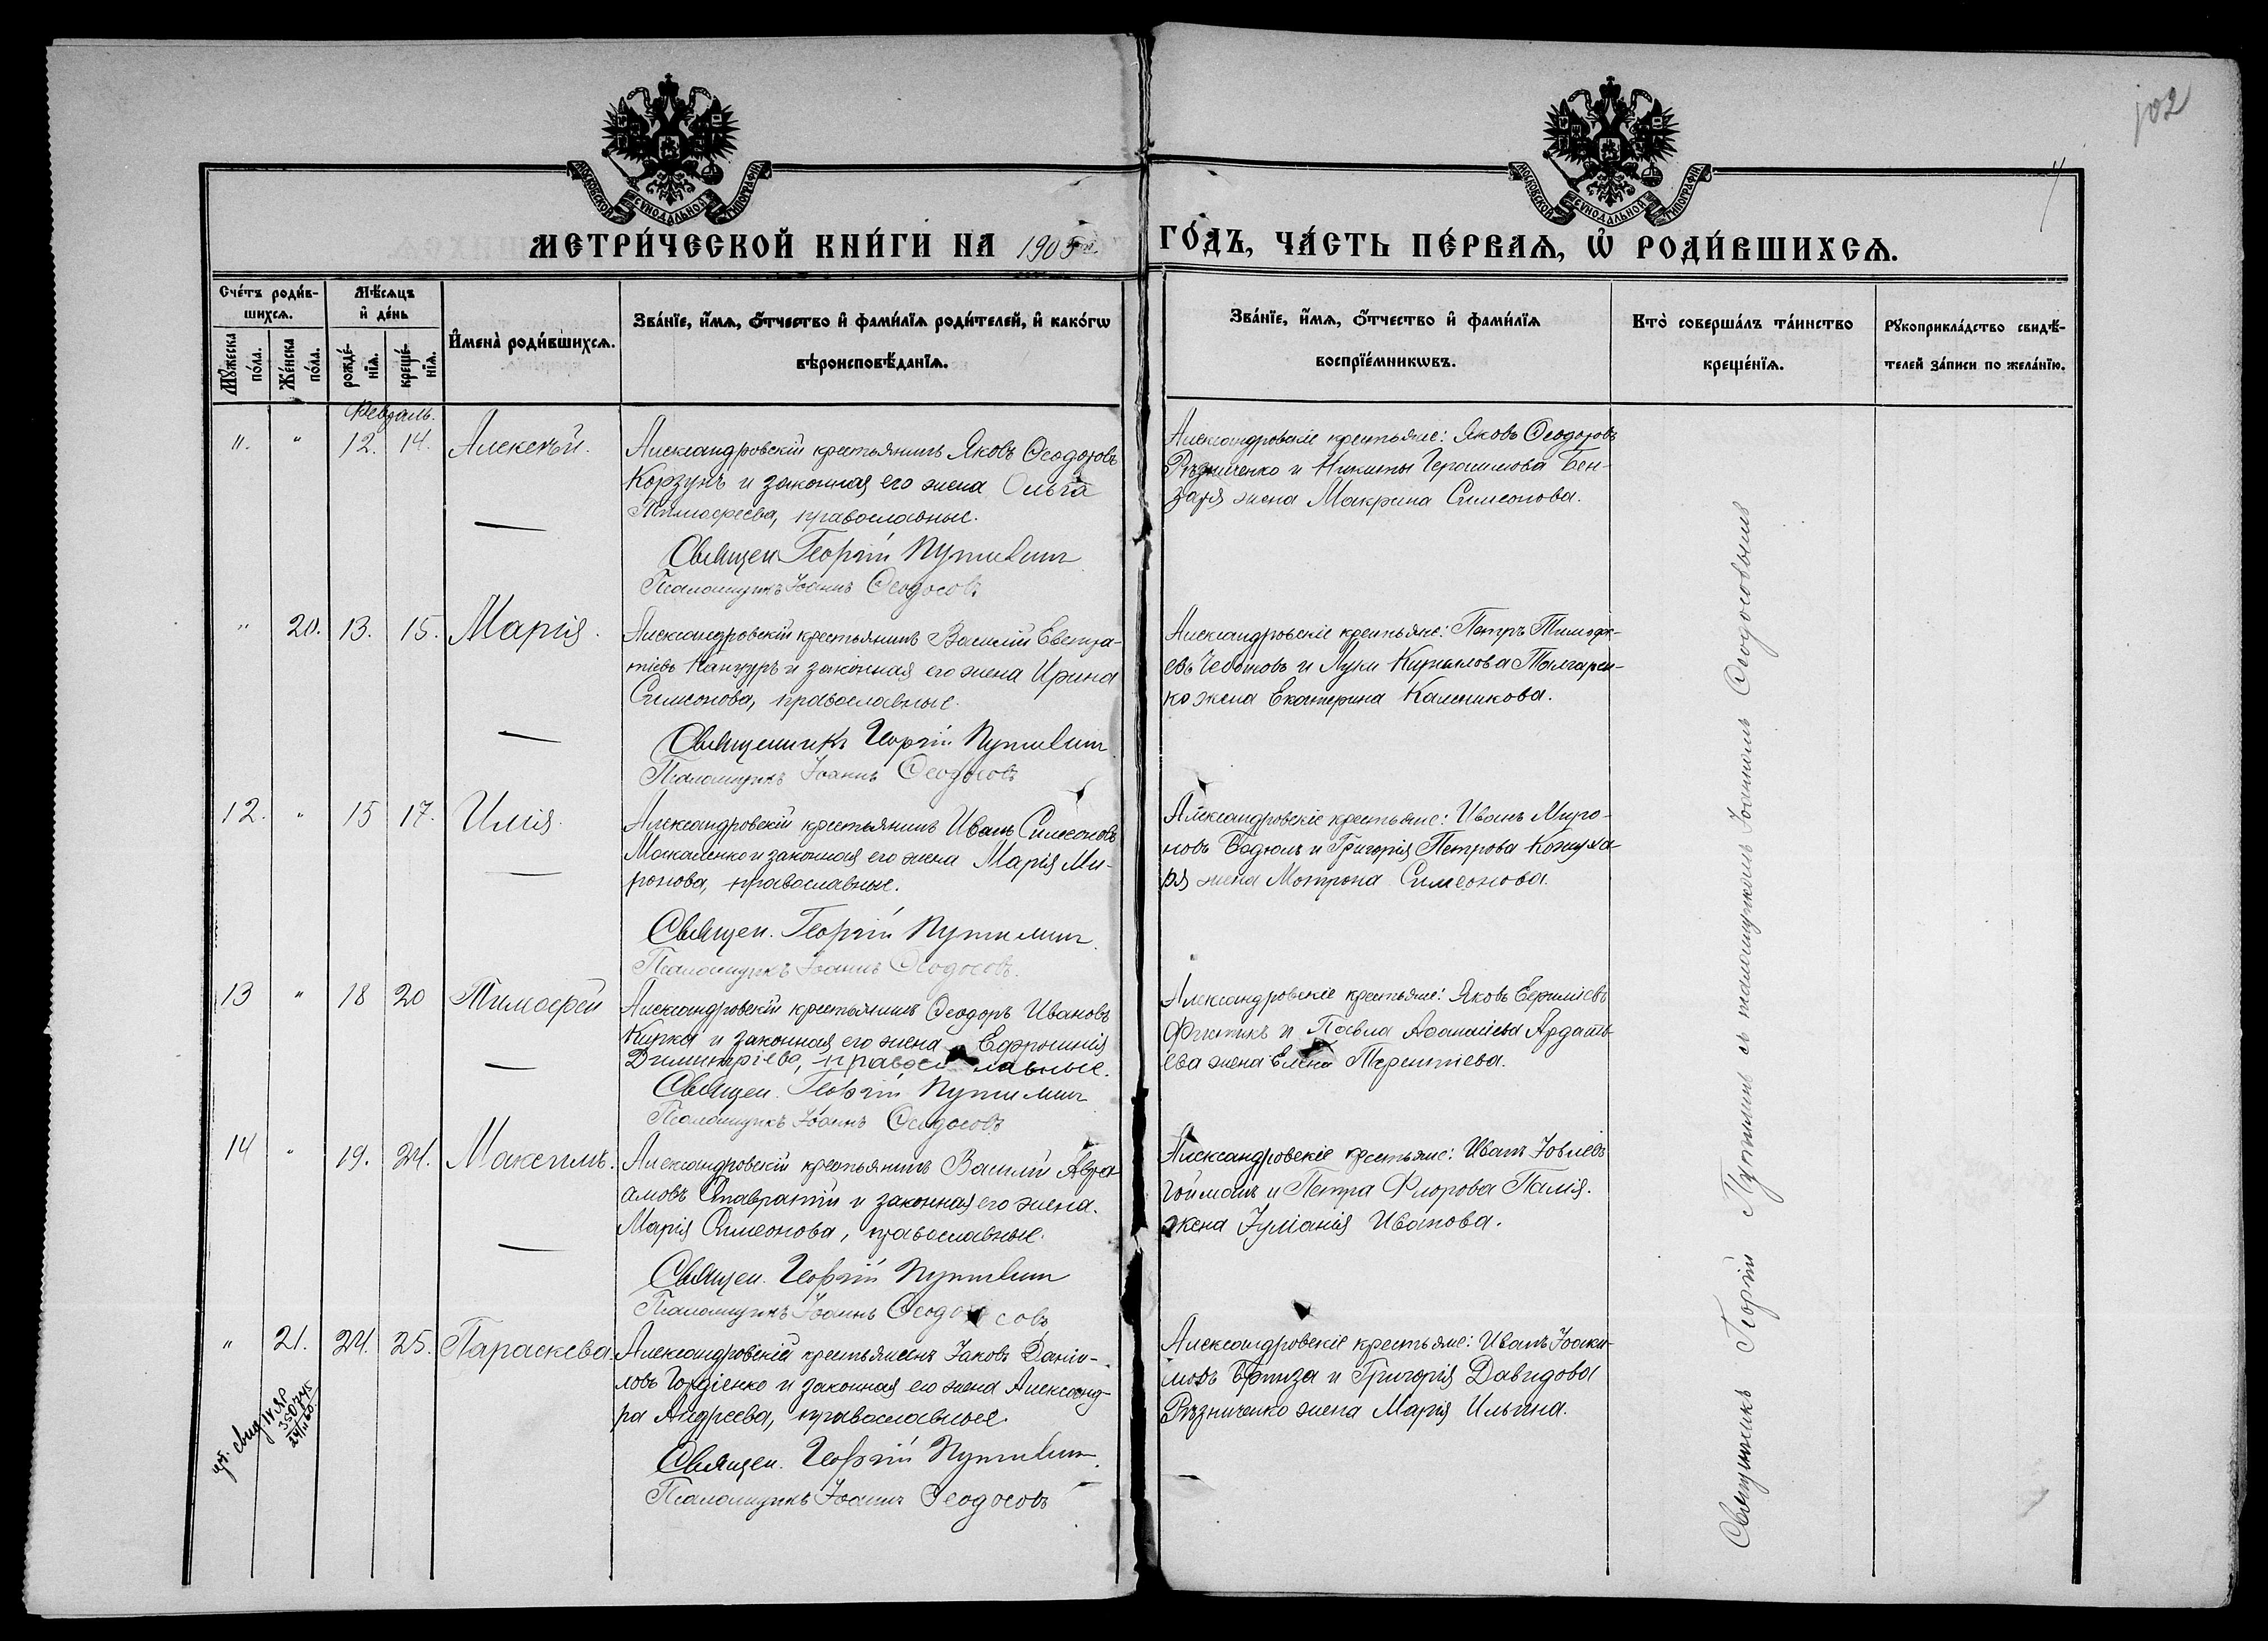 102
МОСКОВСКОЙ СУНОДАЛЬНОЙ ТИПОГРАФІИ
МОСКОВСКОЙ СУНОДАЛЬНОЙ ТИПОГРАФІИ
МЕТРИ́ЧЕСКОЙ КНИ́ГИ НА 1905 ГО́ДЪ, ЧА́СТЬ ПЕ́РВАѦ, Ѡ҆ РОДИ́ВШИХСѦ.
Сче́тъ роди́в-
шихсѧ.
Мѹ́жеска по́ла.
Же́нска по́ла.
Мѣ́сѧцъ
и҆ де́нь
рожде́-
нїѧ.
креще́-
нїѧ.
И҆мена̀ роди́вшихсѧ.
Зва́нїе, и҆́мѧ, ѻ҆́тчество и҆ фами́лїѧ роди́телей, и҆ како́гѡ
вѣроисповѣ́данїѧ.
Зва́нїе, и҆́мѧ, ѻ҆́тчество и҆ фами́лїѧ
воспрїе́мникѡвъ.
Кто̀ соверша́лъ та́инство
креще́нїѧ.
Рѹкоприкла́дство свидѣ́-
телей за́писи по жела́нїю.
Февраль.
11. " 12. 14. Алексѣй.
Александровскій крестьянинъ Яковъ Ѳеодоровъ
Корзунъ и законная его жена Ольга
Тимоѳеева, православные.
Священ Георгій Путилин
Псаломщикъ Іоаннъ Ѳеодосовъ
Александровскіе крестьяне: Яковъ Ѳеодоровъ
Рѣзниченко и Никиты Герасимова Бен-
заря жена Макрина Симеонова.
" 20. 13. 15. Марія.
Александровскій крестьянинъ Василій Евстра-
тіевъ Канжуръ и законная его жена Ирина
Симеонова, православные.
Священникъ Георгій Путилин
Псаломщикъ Іоаннъ Ѳеодосовъ
Александровскіе крестьяне: Петръ Тимоѳе-
евъ Чеботовъ и Кирилова
ко жена Екатерина Калиникова.
12. " 15 17. Илія.
Александровскій крестьянинъ Иванъ Симеоновъ
Мокаленко и законная его жена Марія Ми-
ронова, православные.
Священ. Георгій Путилин
Псаломщикъ Іоаннъ Ѳеодосовъ.
Александровскіе крестьяне: Иванъ Миро-
новъ Бодюлъ и Григорія Петрова Кожуха-
ря жена Мотрона Симеонова.
13 " 18 20 Тимоѳей
Александровскій крестьянинъ Ѳеодоръ Ивановъ
Кирка и законная его жена Евфросинія
Димитріева, православные.
Священ. Георгій Путилин
Псаломщикъ Іоаннъ Ѳеодосовъ
Александровскіе крестьяне: Яковъ
и Павла Аѳанасіева Ардать-
ева жена Елена Терентіева.
14 " 19. 24. Максимъ.
Александровскій крестьянинъ Василій Авра-
амовъ Ставратій и законная его жена.
Марія Симеонова, православные.
Священ. Георгій Путилин
Псаломщикъ Іоаннъ Ѳеодосовъ
Александровскіе крестьяне: Иванъ Іовлевъ
Гойманъ и Петра Флорова Палія.
жена Іуліанія Иванова.
" 21. 24. 25. Параскева.
Александровскій крестьянинъ Іаковъ Даніи-
ловъ Гордіенко и законная его жена Александ-
ра Андреева, православные.
Священ. Георгій Путилин
Псаломщикъ Іоаннъ Ѳеодосовъ
Александровскіе крестьяне: Иванъ Іоаки-
мовъ и Григорія Давидова
Рѣзниченко жена Марія Ильина.
350745
Священникъ Георгій Путилинъ съ псаломщикомъ Іоанномъ Ѳеодосовымъ